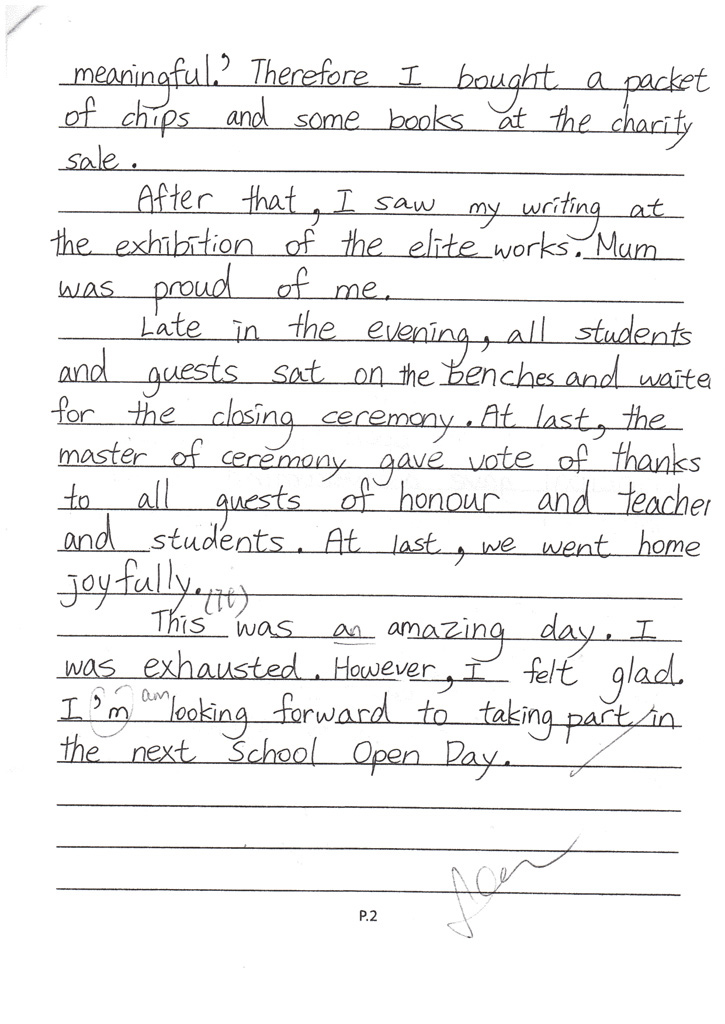 meaningful.' Therefore I bought a packet
of chips and some books at the charity
sale.
After that, I saw my writing at
the exhibition of the elite works. Mum
was proud of me.
Late in the evening, all students
and guests sat on the benches and waite
for the closing ceremony. At last, the
master of ceremony gave vote of thanks
to all guests of honour and teacher
and students. At last, we went home
joyfully.
This was an amazing day. I
was exhausted. However, I felt glad.
I'm am looking forward to taking part in
the next School Open Day.
P.2